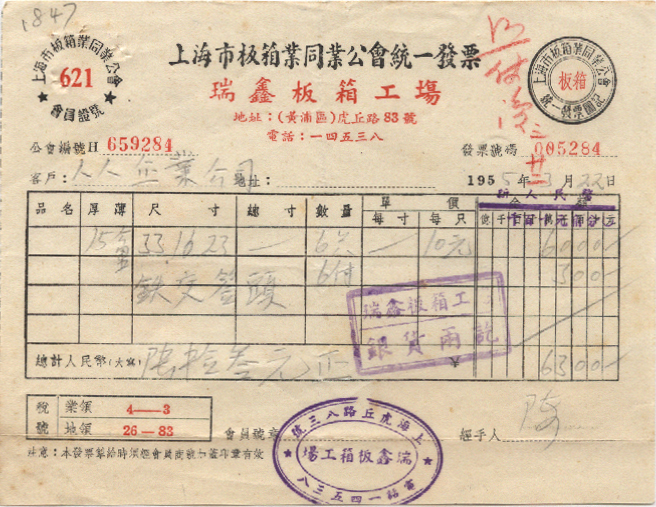 1847
上海市板箱業同業公會
621
會員證號
上海市板箱業同業公會統一發票
瑞鑫板箱工場
地址：(黃浦區)虎丘路83號
電話：一四五三八
上海市板箱業同業公會
板箱
統一發票圖記
公會編號H 659284
發票號碼 005284
廿三
客戶：人人企業公司 地址：
1955年3月22日
品名 厚薄 尺寸 總寸 數量 單價 金額
每寸 每只
新人民幣
33 16 23 — 6只 — 10元 6000
鉄交簽頭 6付 300
瑞鑫板箱工
銀貨兩訖
總計人民幣(大寫) 陸拾叁元正 6300
稅號 業領 4—3
地領 26—83
會員號章
經手人 陶
注意：本發票
上海虎丘路八三號
瑞鑫板箱工場
電話一四五三八